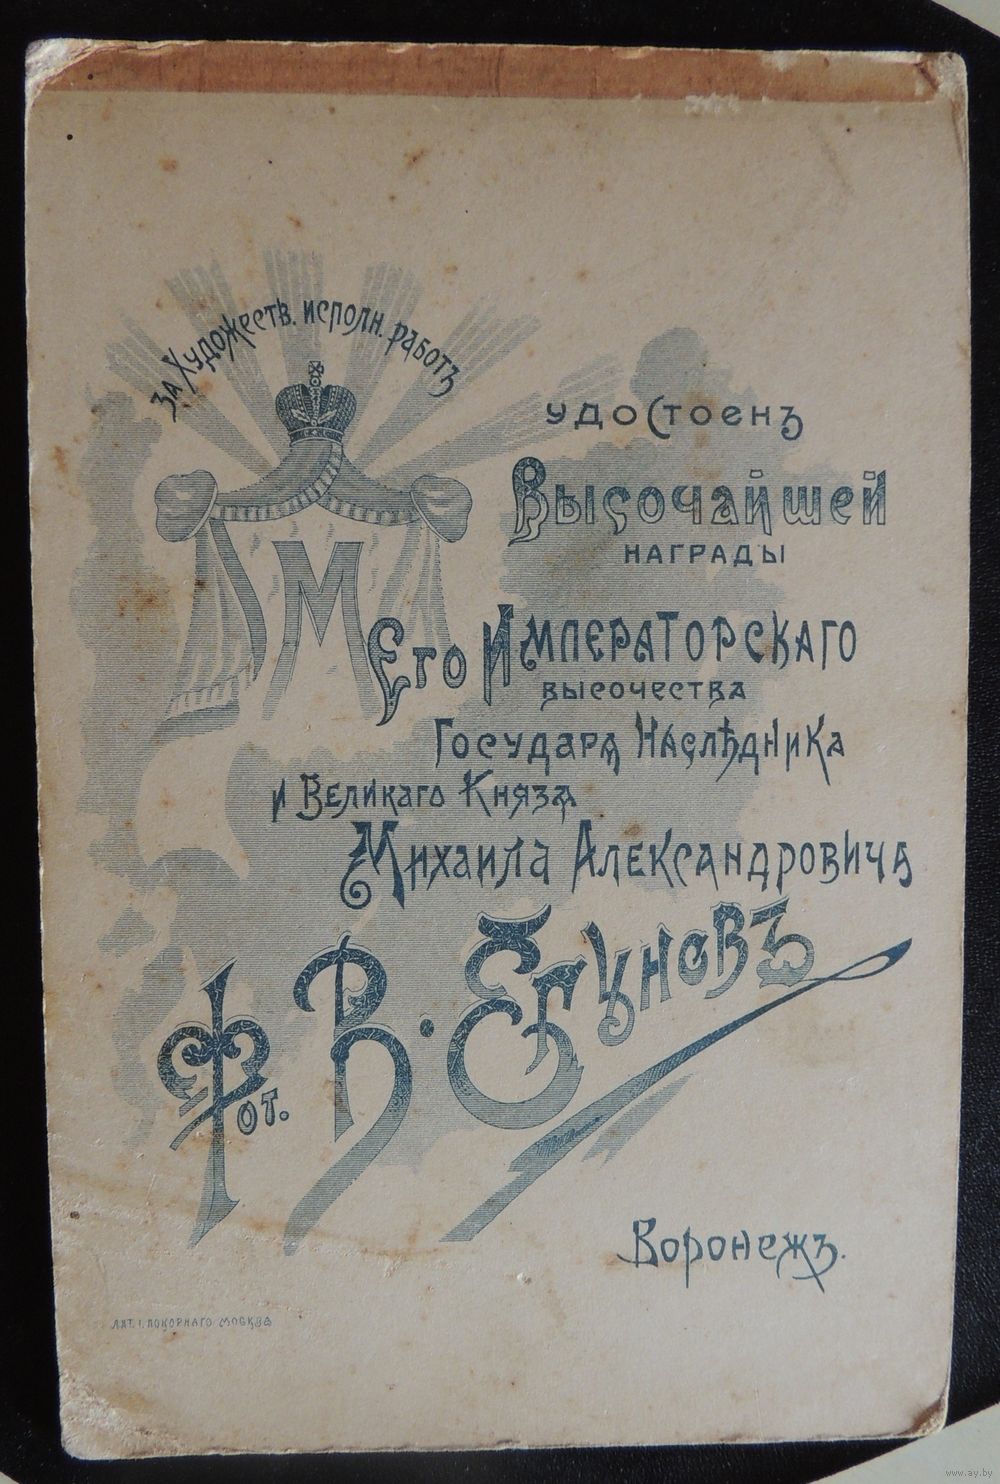 За Художеств. исполн. работъ
удостоенъ
Высочайшей
награды
М
Его Императорскаго
высочества
Государя Наслѣдника
и Великаго Князя
Михаила Александровича
Фот. В. Егуновъ
Воронежъ.
Лит. І. Покорнаго Москва
www.ay.by